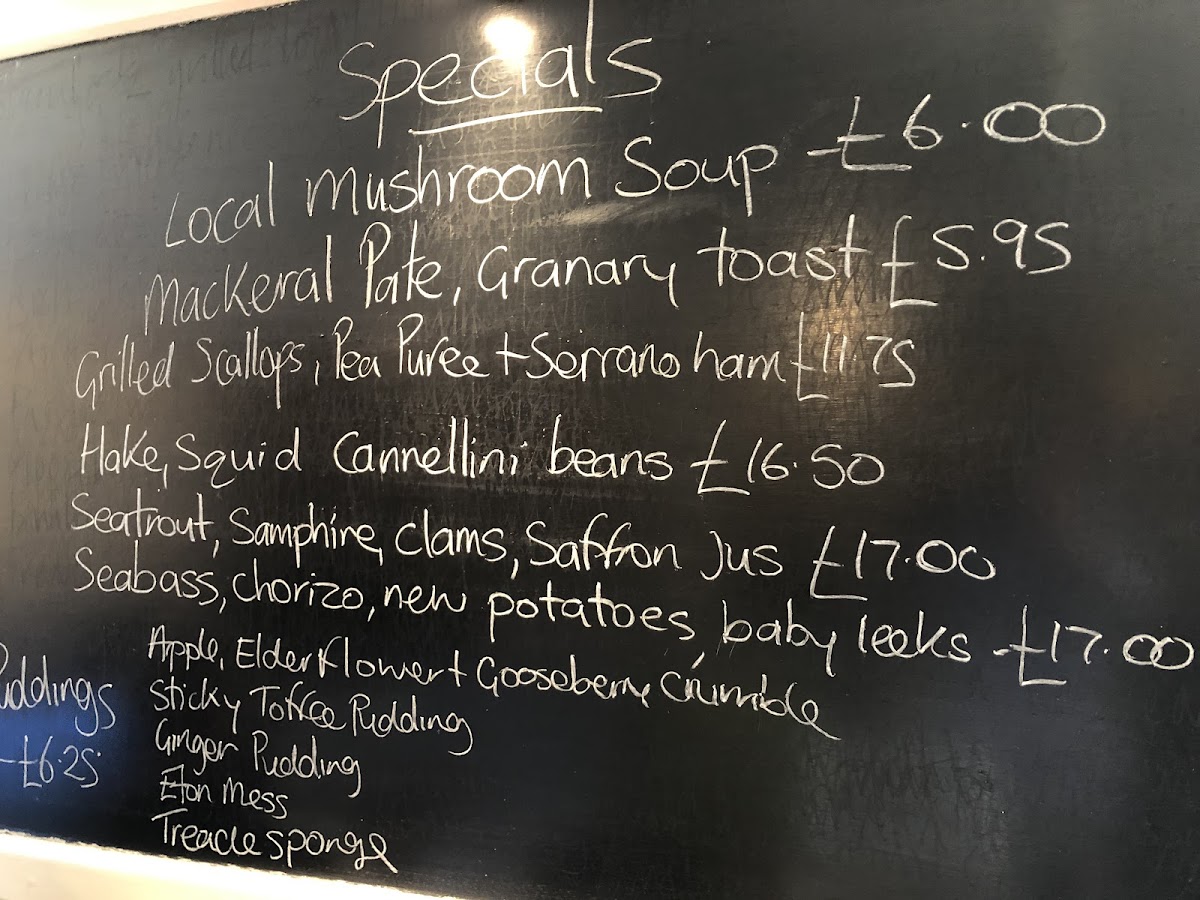 Specials
Local mushroom Soup - £6.00
Mackeral Pate, Granary toast £5.95
Grilled Scallops, Pea Puree + Serrano ham £11.75
Hake, Squid Cannellini beans £16.50
Seatrout, Samphire, Clams, Saffron Jus £17.00
Seabass, chorizo, new potatoes, baby leeks - £17.00
Puddings
- £6.25
Apple, Elderflower + Gooseberry Crumble
Sticky Toffee Pudding
Ginger Pudding
Eton Mess
Treacle sponge